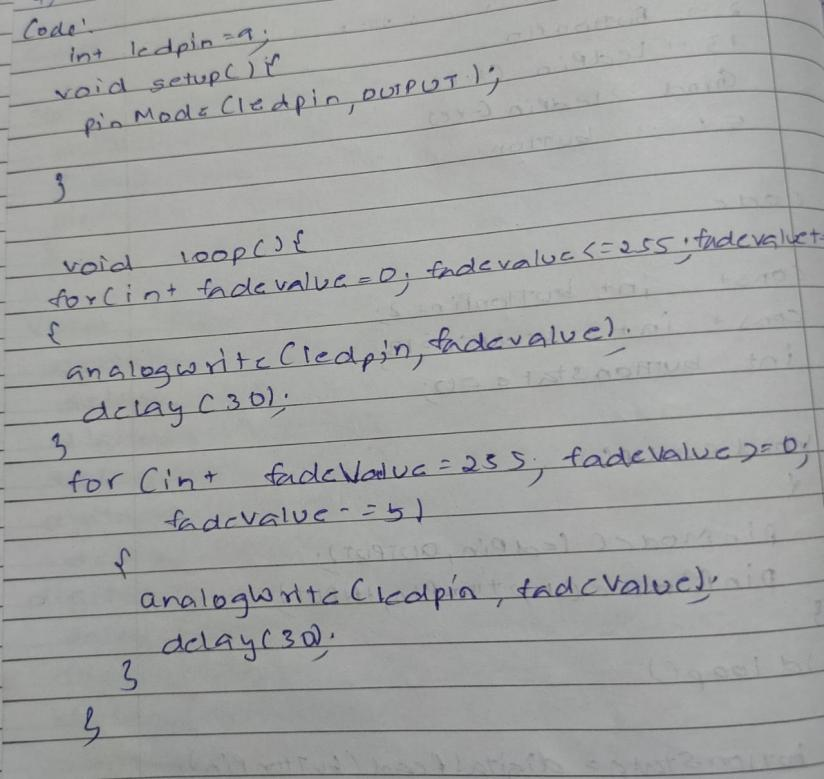 Code:
int ledpin=9;
void setup(){
pinMode(ledpin,OUTPUT);
}
void loop(){
for(int fadevalue=0; fadevalue<=255;fadevalue+
{
analogwrite(ledpin,fadevalue);
delay(30);
}
for (int fadeValue=255; fadevalue>=0;
fadevalue-=5)
{
analogWrite(ledpin, fadeValue);
delay(30);
}
}